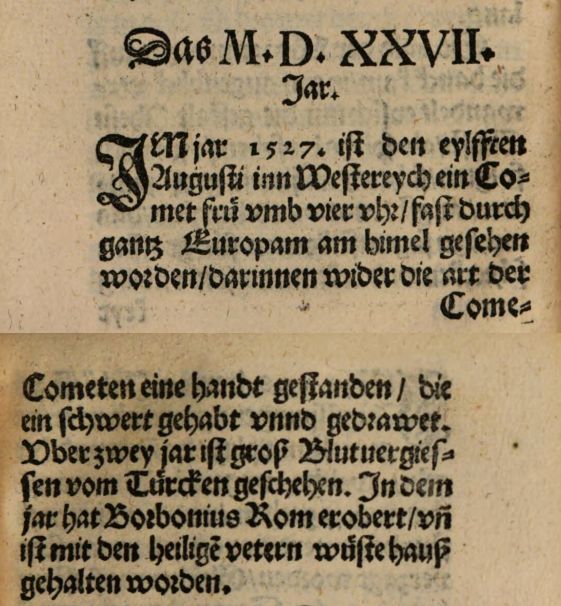 Das M. D. XXVII.
Jar.
IM jar 1527. ist den eylfften
Augusti inn Westereych ein Co-
met frü vmb vier vhr/fast durch
gantz Europam am himel gesehen
worden/darinnen wider die art der
Come-
Cometen eine handt gestanden/ die
ein schwert gehabt vnnd gedrawet.
Vber zwey jar ist groß Blutuergies-
sen vom Türcken geschehen. In dem
jar hat Borbonius Rom erobert/vñ
ist mit den heiligẽ vetern wüste hauß
gehalten worden.